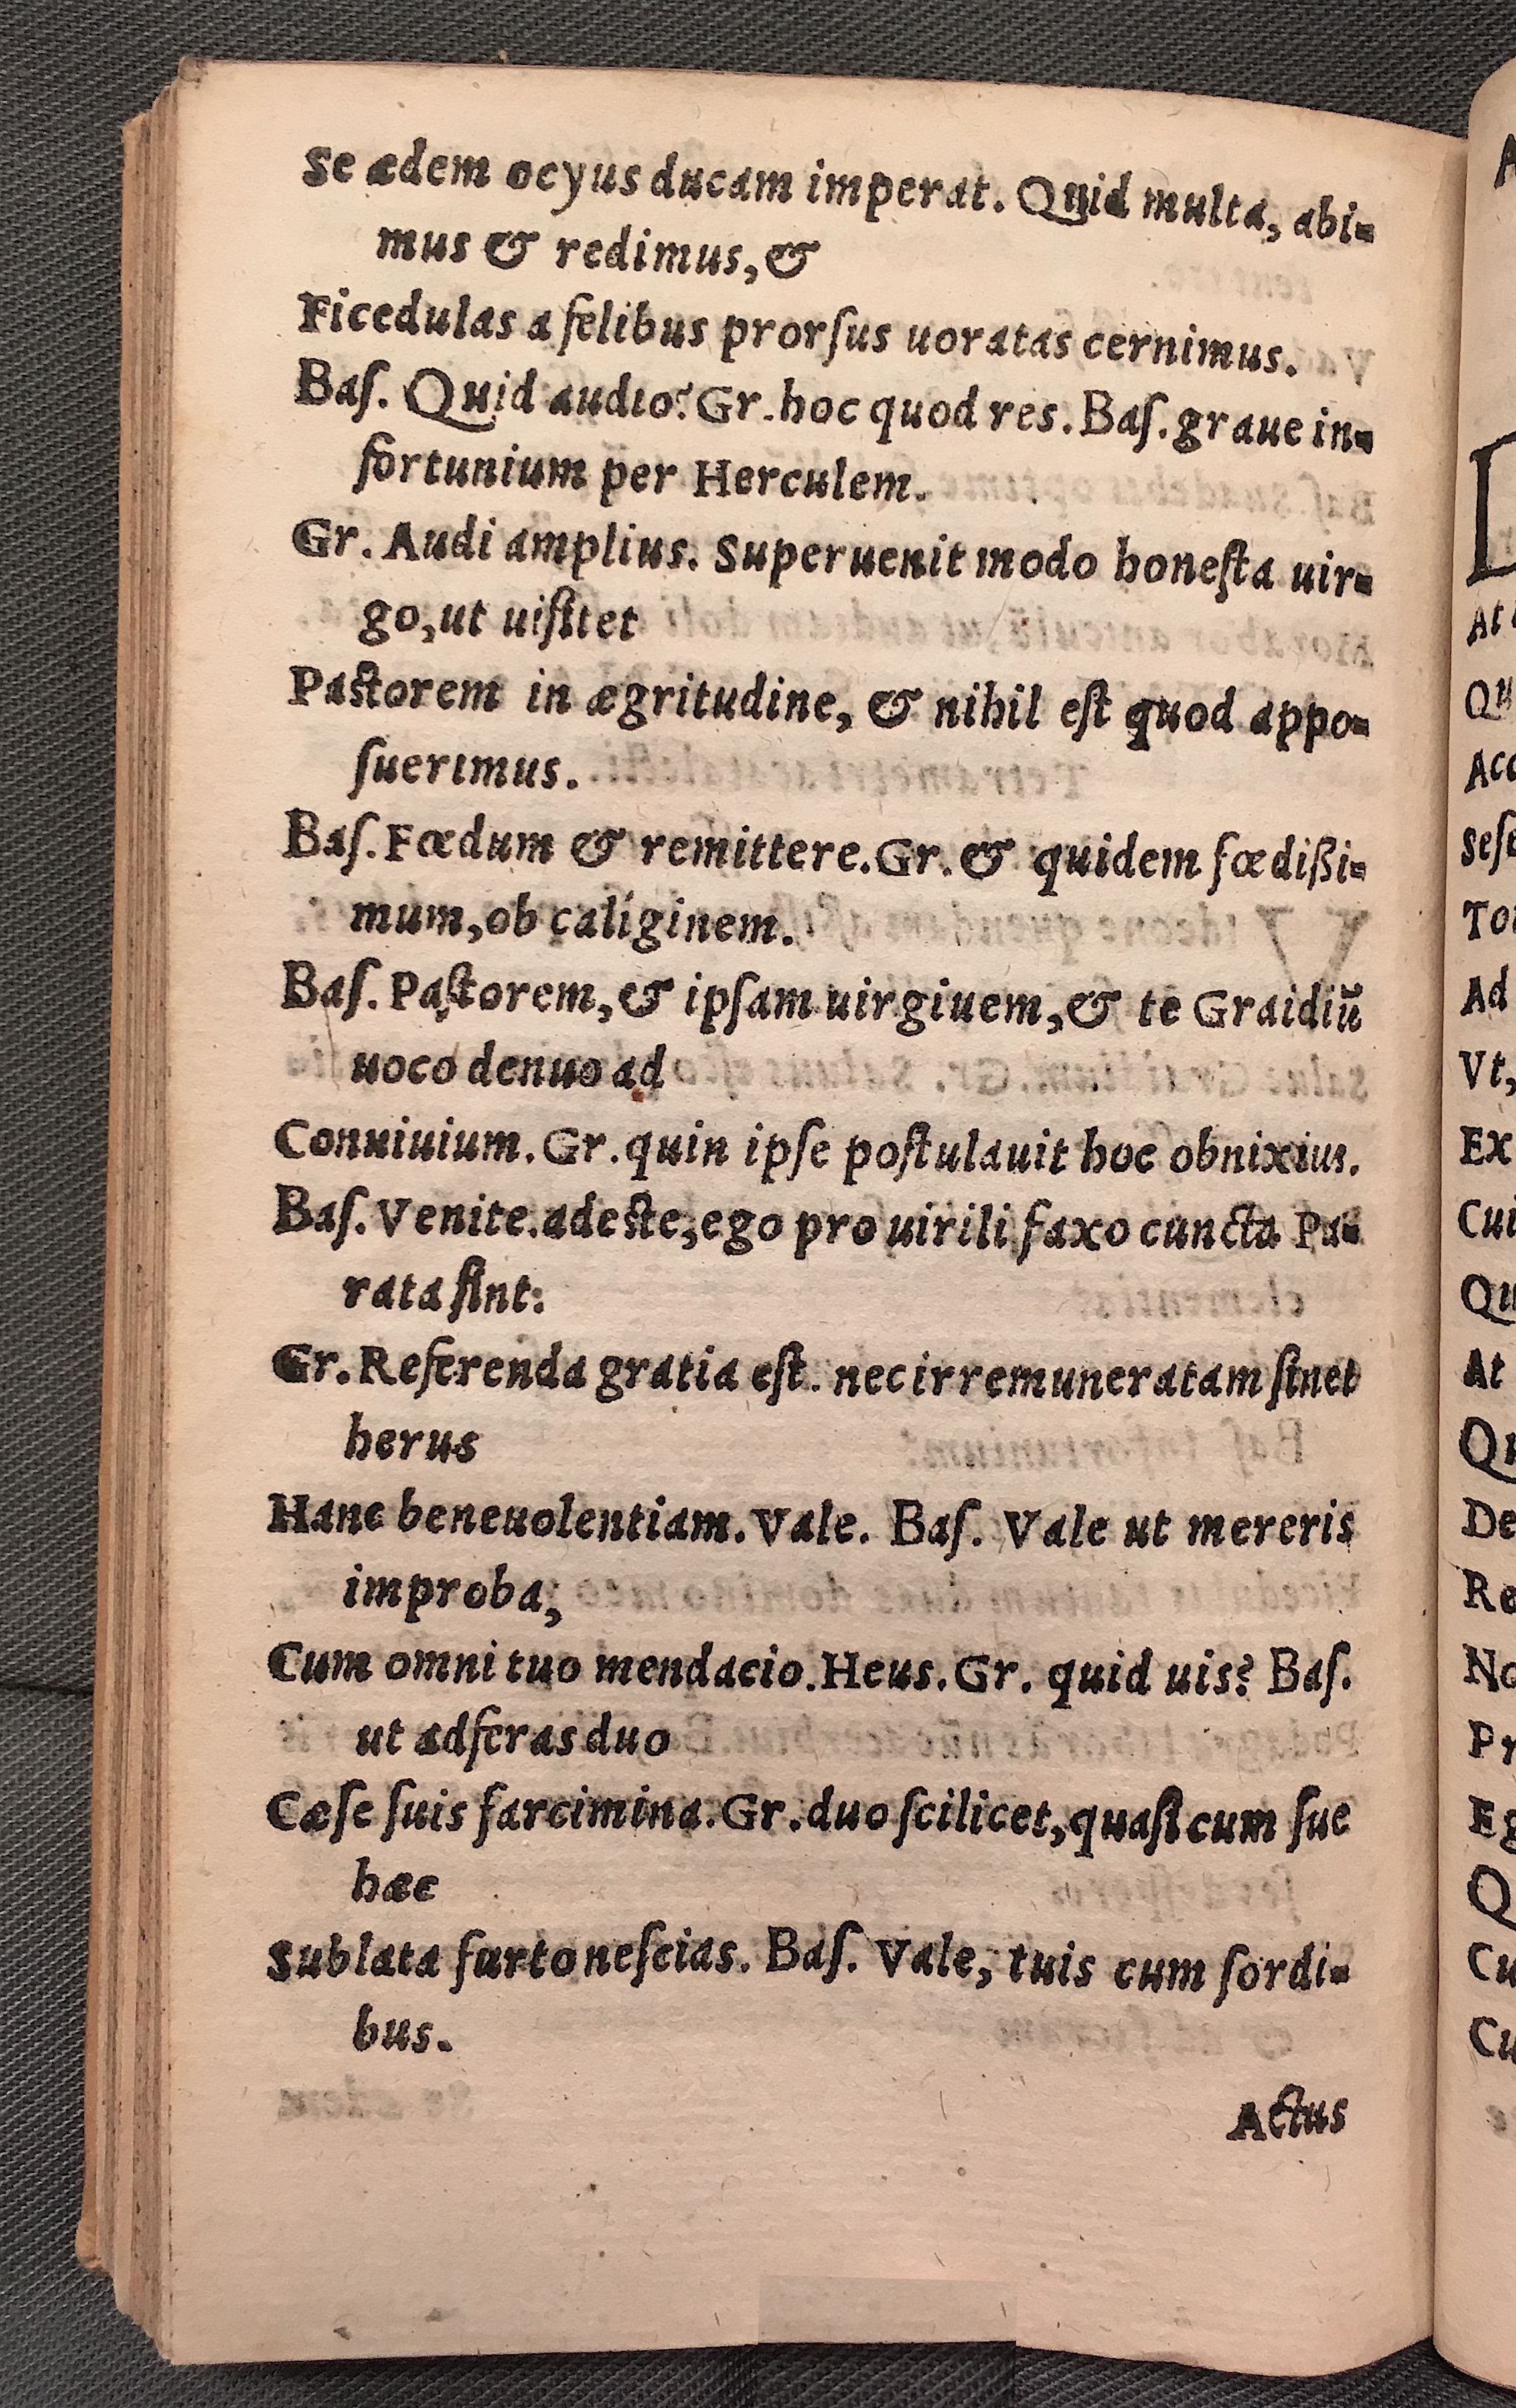 Se ædem ocyus ducam imperat. Quid multa, abi-
mus & redimus, &
Ficedulas a felibus prorſus uoratas cernimus.
Baſ. Quid audio? Gr. hoc quod res. Baſ. graue in-
fortunium per Herculem.
Gr. Audi amplius. Superuenit modo honeſta uir-
go, ut uiſitet
Paſtorem in ægritudine, & nihil eſt quod appo-
ſuerimus.
Baſ. Fœdum & remittere. Gr. & quidem fœdißi-
mum, ob caliginem.
Baſ. Paſtorem, & ipſam uirgiuem, & te Graidiū
uoco denuo ad
Conuiuium. Gr. quin ipſe poſtulauit hoc obnixius.
Baſ. Venite. adeſte, ego pro uirili faxo cuncta Pa-
rata ſint:
Gr. Referenda gratia eſt. nec irremuneratam ſinet
herus
Hanc beneuolentiam. Vale. Baſ. Vale ut mereris
improba,
Cum omni tuo mendacio. Heus. Gr. quid uis? Baſ.
ut adferas duo
Cæſe ſuis farcimina. Gr. duo ſcilicet, quaſi cum ſue
hæc
Sublata furto neſcias. Baſ. Vale, tuis cum ſordi-
bus.
Actus
At
Qu
Acc
Seſe
Tor
Ad
Vt,
Ex
Cui
Qu
At
De
Re
No
Pr
Eg
Q
Cu
Cu